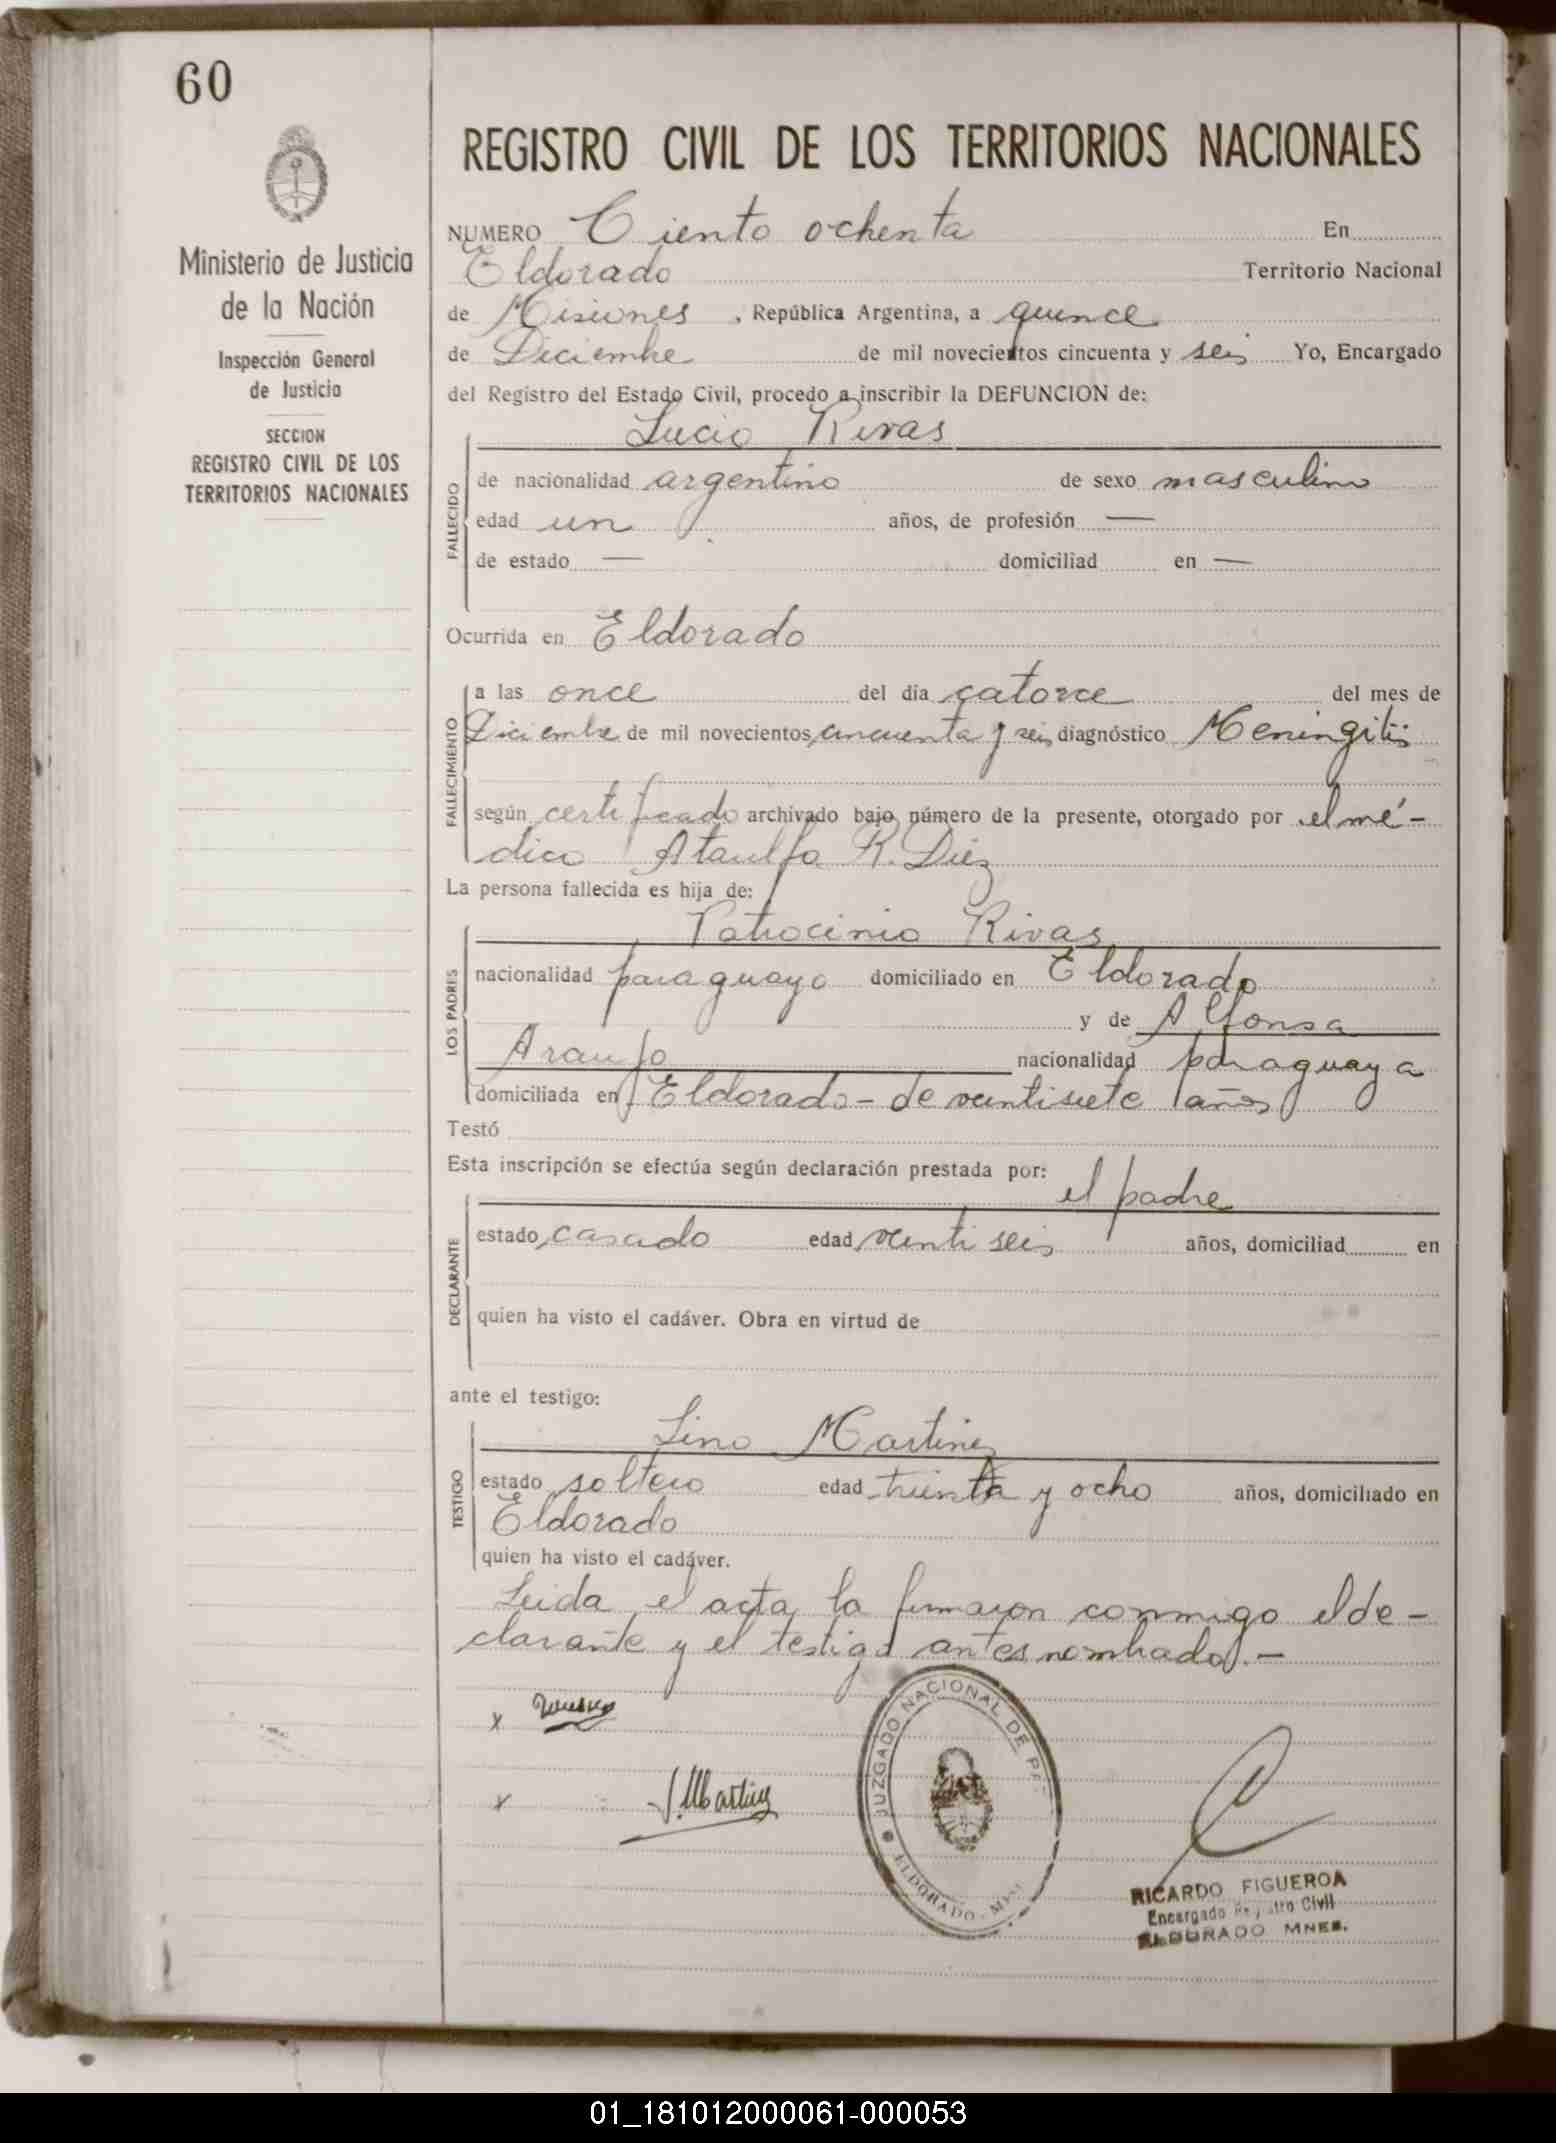 60
REGISTRO CIVIL DE LOS TERRITORIOS NACIONALES
Ministerio de Justicia
de la Nación
Inspección General
de Justicia
SECCION
REGISTRO CIVIL DE LOS
TERRITORIOS NACIONALES
NUMERO Ciento ochenta En
Eldorado Territorio Nacional
de Misiones, República Argentina, a quince
de Diciembre de mil novecientos cincuenta y seis Yo, Encargado
del Registro del Estado Civil, procedo a inscribir la DEFUNCION de:
Lucio Rivas
FALLECIDO
de nacionalidad argentino de sexo masculino
edad un años, de profesión —
de estado — domiciliad en —
Ocurrida en Eldorado
FALLECIMIENTO
a las once del día catorce del mes de
Diciembre de mil novecientos cincuenta y seis diagnóstico Meningitis
según certificado archivado bajo número de la presente, otorgado por el mé-
dico Ataulfo R. Diez
La persona fallecida es hija de:
LOS PADRES
Patrocinio Rivas
nacionalidad paraguayo domiciliado en Eldorado
y de Alfonsa
Araujo nacionalidad paraguaya
domiciliada en Eldorado - de veintisiete años
Testó
Esta inscripción se efectúa según declaración prestada por:
el padre
DECLARANTE
estado casado edad veintiseis años, domiciliad en
quien ha visto el cadáver. Obra en virtud de
ante el testigo:
Lino Martinez
TESTIGO
estado soltero edad treinta y ocho años, domiciliado en
Eldorado
quien ha visto el cadáver.
Leida el acta la firmaron conmigo el de-
clarante y el testigo antes nombrado.-
x
x J. Martinez
JUZGADO NACIONAL DE
ELDORADO -
RICARDO FIGUEROA
Encargado Registro Civil
ELDORADO MNES.
01_181012000061-000053